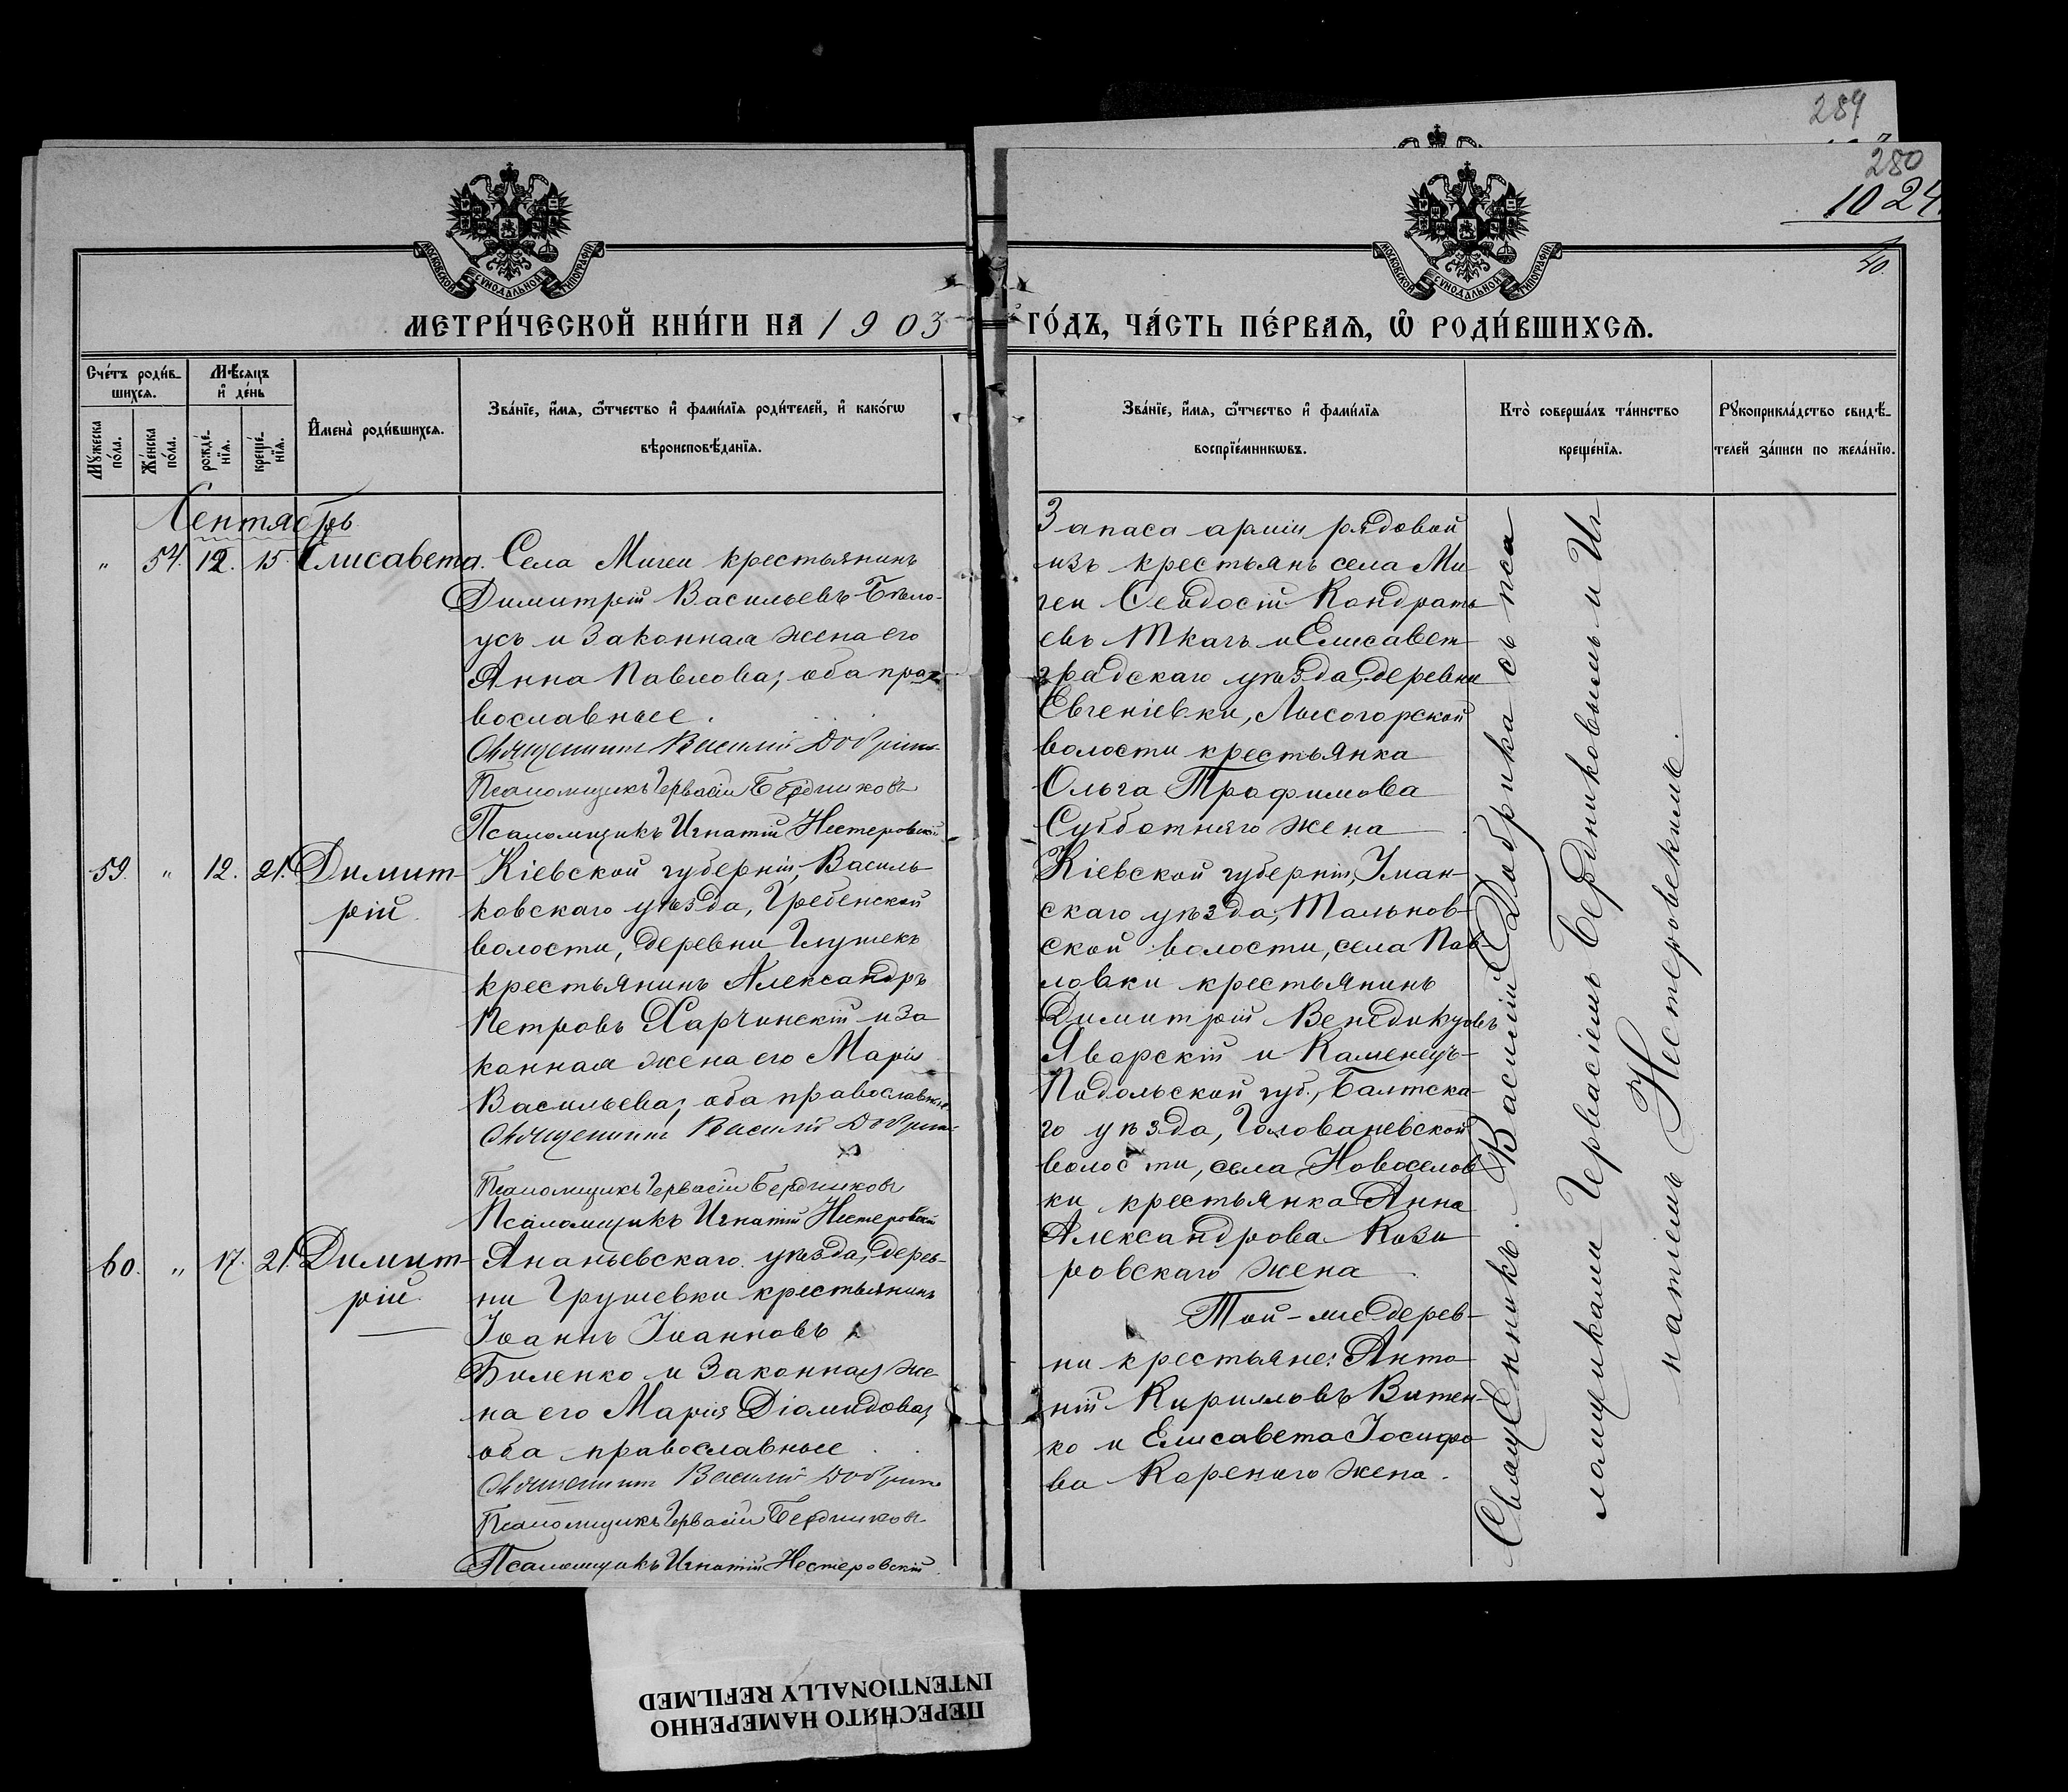 289
280
1024.
40.
МОСКОВСКОЙ СѴНОДАЛЬНОЙ ТИПОГРАФІИ
МОСКОВСКОЙ СѴНОДАЛЬНОЙ ТИПОГРАФІИ
МЕТРИ́ЧЕСКОЙ КНИ́ГИ НА 1903
ГО́ДЪ, ЧА́СТЬ ПЕ́РВАѦ, Ѽ РОДИ́ВШИХСѦ.
Сче́тъ роди́в-
шихсѧ.
Мꙋ́жеска по́ла.
Же́нска по́ла.
Мѣ́сѧцъ
и҆ де́нь
рожде́-
нїѧ.
креще́-
нїѧ.
И҆мена̀ роди́вшихсѧ.
Зва́нїе, и҆́мѧ, ѻ҆́тчество и҆ фами́лїѧ роди́телей, и҆ како́гѡ
вѣроисповѣ́данїѧ.
Зва́нїе, и҆́мѧ, ѻ҆́тчество и҆ фами́лїѧ
воспрїе́мникѡвъ.
Кто̀ соверша́лъ та́инство
креще́нїѧ.
Рꙋкоприкла́дство свидѣ́-
телей за́писи по жела́нїю.
Сентябрь
" 54. 12. 15. Елисавета.
Села Мигеи крестьянинъ
Димитрій Васильевъ Бѣло-
усъ и законная жена его
Анна Павлова, оба пра-
вославные.
Священникъ Василій Добрика
Псаломщикъ Гервасій Бердниковъ
Псаломщикъ Игнатій Нестеровскій
Запаса арміи рядовой
изъ крестьянъ села Ми
геи Ѳеодосій Кондрать
евъ Ткачъ и Елисавет
градскаго уѣзда, деревни
Евгеніевки, Лысогорской
волости крестьянка
Ольга Трофимова
Субботняго жена
59. " 12. 21. Димит-
рій.
Кіевской губерніи, Василь
ковскаго уѣзда, Гребенской
волости, деревни Глушекъ
крестьянинъ Александръ
Петровъ Харчинскій и за
конная жена его Марія
Васильева, оба православные
Священникъ Василій Добрика
Псаломщикъ Гервасій Бердниковъ
Псаломщикъ Игнатій Нестеровскій
Кіевской губерніи, Уман-
скаго уѣзда, Тальнов-
ской волости, села Пав-
ловки крестьянинъ
Димитрій Венедиктовъ
Яворскій и Каменецъ-
Подольской губ., Балтска-
го уѣзда, Голованевской
волости, села Новоселов
ки крестьянка Анна
Александрова Кози
ровскаго жена
60. " 17. 21. Димит-
рій.
Ананьевскаго уѣзда, дерев-
ни Грушевки крестьянинъ
Іоаннъ Іоанновъ
Биленко и законная же
на его Марія Діомидова,
оба православные
Священникъ Василій Добрика
Псаломщикъ Гервасій Бердниковъ
Псаломщикъ Игнатій Нестеровскій.
Той-же дерев-
ни крестьяне: Анто
ній Кирилловъ Витен-
ко и Елисавета Іосифо
ва Кореного жена.
Священникъ Василій Добрика съ пса
ломщиками Гервасіемъ Бердниковымъ и Иг
натіемъ Нестеровскимъ.
ПЕРЕСНЯТО НАМЕРЕННО
INTENTIONALLY REFILMED